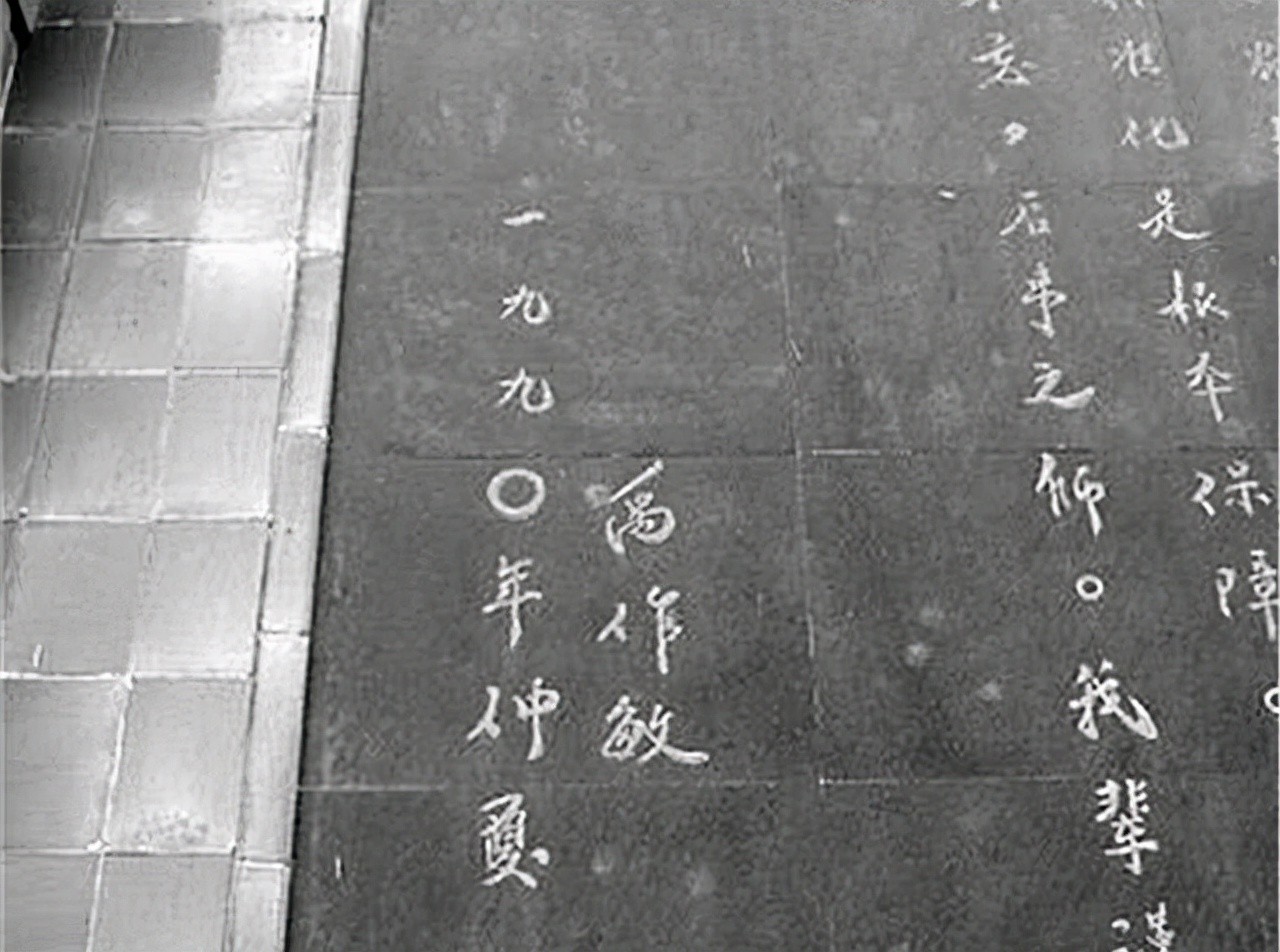 是根本保障。
忘，后事之师。我辈
禹作敏
一九九〇年仲夏